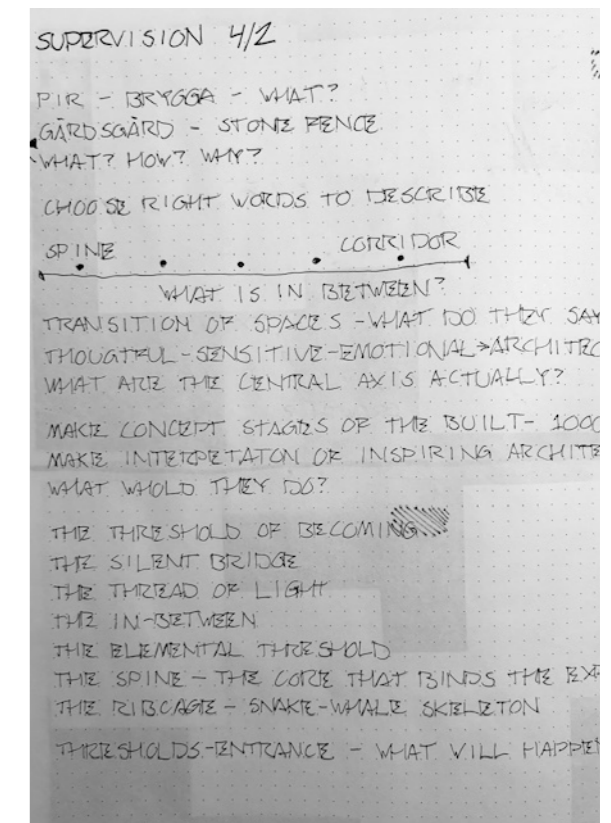 SUPERVISION 4/2
PIR - BRYGGA - WHAT?
GÄRDSGÅRD - STONE FENCE
WHAT? HOW? WHY?
CHOOSE RIGHT WORDS TO DESCRIBE
SPINE CORRIDOR
WHAT IS IN BETWEEN?
TRANSITION OF SPACES - WHAT DO THEY SAY
THOUGTFUL - SENSITIVE - EMOTIONAL → ARCHITEC
WHAT ARE THE CENTRAL AXIS ACTUALLY?
MAKE CONCEPT STAGES OF THE BUILT - 1000
MAKE INTERPETATON OF INSPIRING ARCHITE
WHAT WHOLD THEY DO?
THE THRESHOLD OF BECOMING
THE SILENT BRIDGE
THE THREAD OF LIGHT
THE IN-BETWEEN
THE ELEMENTAL THRESHOLD
THE SPINE - THE CORE THAT BINDS THE EXP
THE RIBCAGE - SNAKE - WHALE SKELETON
THRESHOLDS - ENTRANCE - WHAT WILL HAPPEN